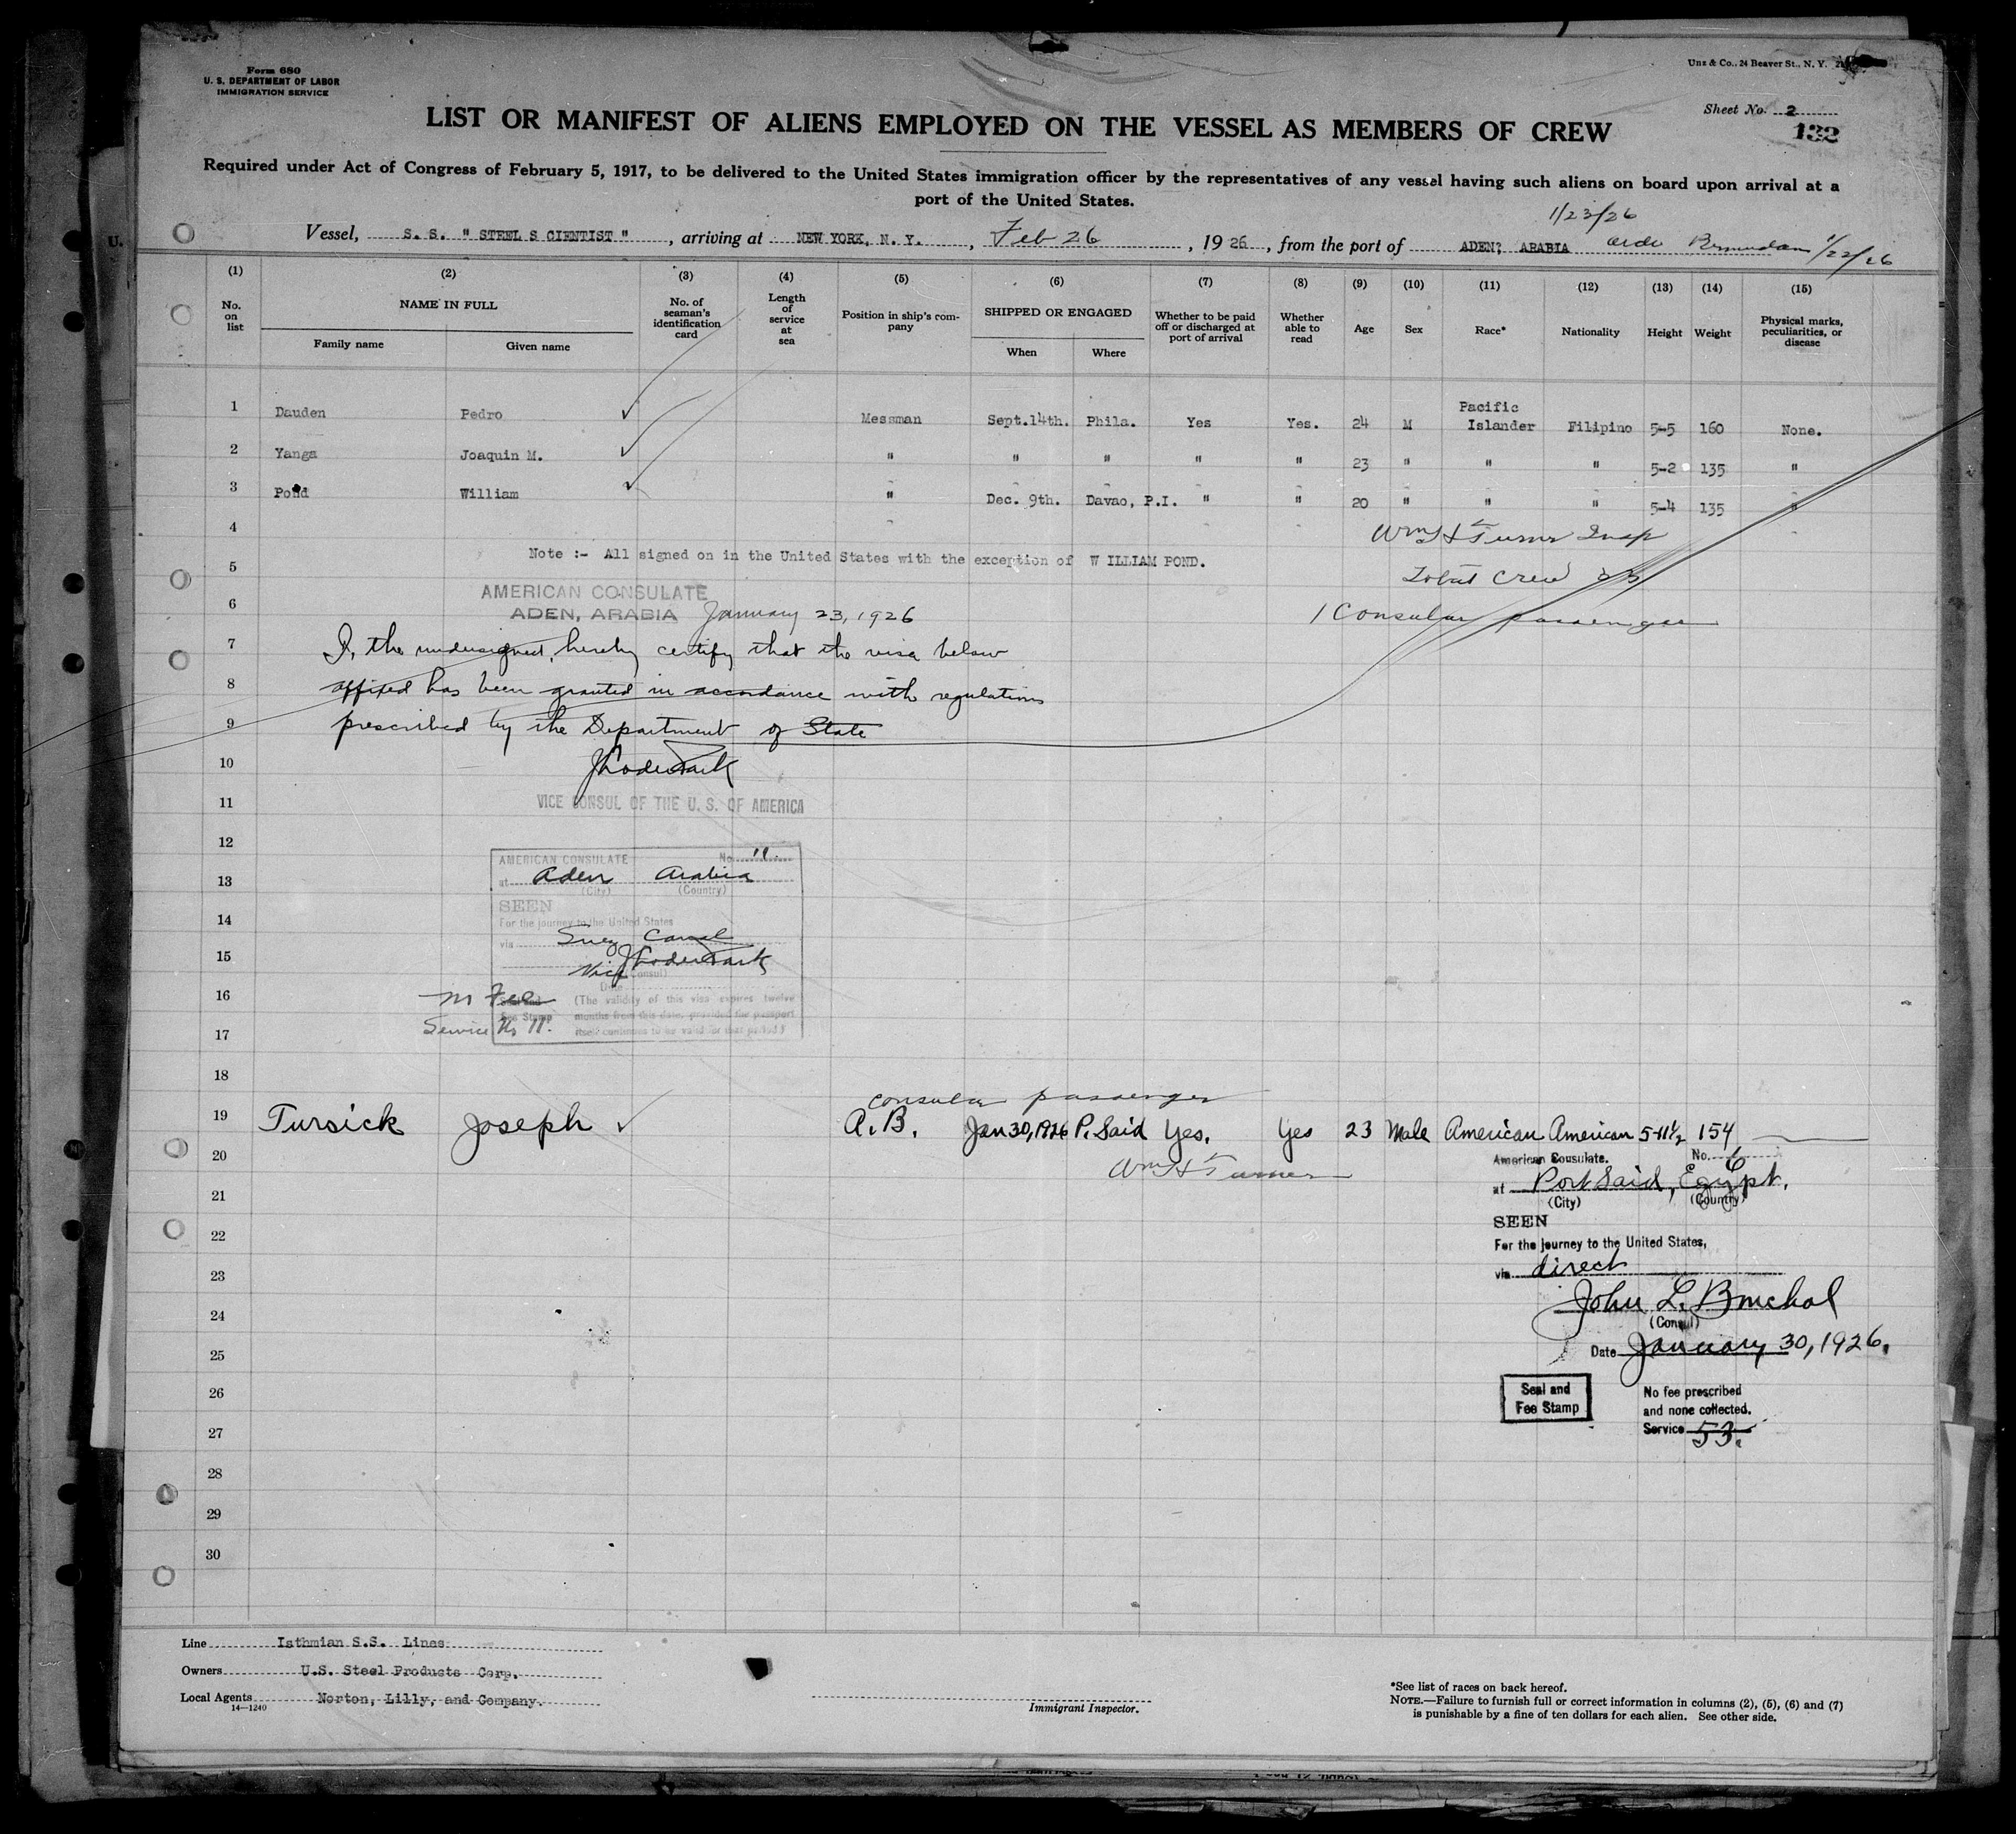 Form 680
U. S. DEPARTMENT OF LABOR
IMMIGRATION SERVICE
Unz & Co., 24 Beaver St., N. Y.
Sheet No. 2
132
LIST OR MANIFEST OF ALIENS EMPLOYED ON THE VESSEL AS MEMBERS OF CREW
Required under Act of Congress of February 5, 1917, to be delivered to the United States immigration officer by the representatives of any vessel having such aliens on board upon arrival at a
port of the United States.
1/23/26
Vessel, S. S. " STEEL S CIENTIST " , arriving at NEW YORK, N. Y. , Feb 26 , 19 26 , from the port of ADEN; ARABIA
(1) (2) (3) (4) (5) (6) (7) (8) (9) (10) (11) (12) (13) (14) (15)
No. on list
NAME IN FULL
Family name Given name
No. of seaman's identification card
Length of service at sea
Position in ship's company
SHIPPED OR ENGAGED
When Where
Whether to be paid off or discharged at port of arrival
Whether able to read
Age
Sex
Race*
Nationality
Height
Weight
Physical marks, peculiarities, or disease
1 Dauden Pedro ✓ Messman Sept.14th. Phila. Yes Yes. 24 M Pacific Islander Filipino 5-5 160 None.
2 Yanga Joaquin M. ✓ " " " " " 23 " " " 5-2 135 "
3 Pond William ✓ " Dec. 9th. Davao, P.I. " " 20 " " " 5-4 135 "
4 Wm H Turner Insp
Note :- All signed on in the United States with the exception of W ILLIAM POND.
5 Total Crew
AMERICAN CONSULATE
6 ADEN, ARABIA January 23, 1926
1 Consular passenger
7 I, the undersigned, hereby certify that the visa below
8 affixed has been granted in accordance with regulations
9 prescribed by the Department of State
10
11 VICE CONSUL OF THE U. S. OF AMERICA
12
AMERICAN CONSULATE No. 11.
13 at Aden Arabia
(City) (Country)
SEEN
14 For the journey to the United States
via Suez Canal
15
Vice Consul)
Date
16 Fee (The validity of this visa expires twelve
Fee Stamp months from this date, provided the passport
17 Service No 11. itself continues to be valid for that period)
18
consular passenger
19 Tursick Joseph ✓ A. B. Jan 30, 1926 P. Said Yes. Yes 23 Male American American 5-11½ 154
20 Wm H Turner
American Consulate. No. 6
21 at Port Said, Egypt.
(City) (Country)
SEEN
22 For the journey to the United States,
23 via direct
24 John L.
(Consul)
25 Date January 30, 1926.
26 Seal and
Fee Stamp
No fee prescribed
and none collected.
27 Service 53.
28
29
30
Line Isthmian S.S. Lines
Owners U.S. Steel Products Corp.
Local Agents Norton, Lilly, and Company.
14—1240
Immigrant Inspector.
*See list of races on back hereof.
NOTE.—Failure to furnish full or correct information in columns (2), (5), (6) and (7)
is punishable by a fine of ten dollars for each alien. See other side.